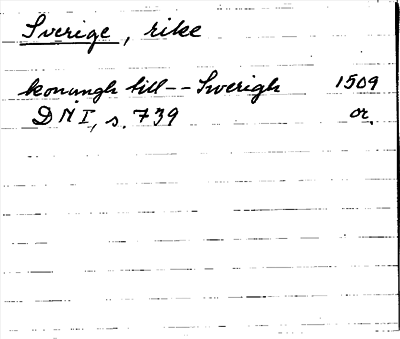 Sverige, rike
konungh till -- Swerigh 1509
D N I, s. 739 or.